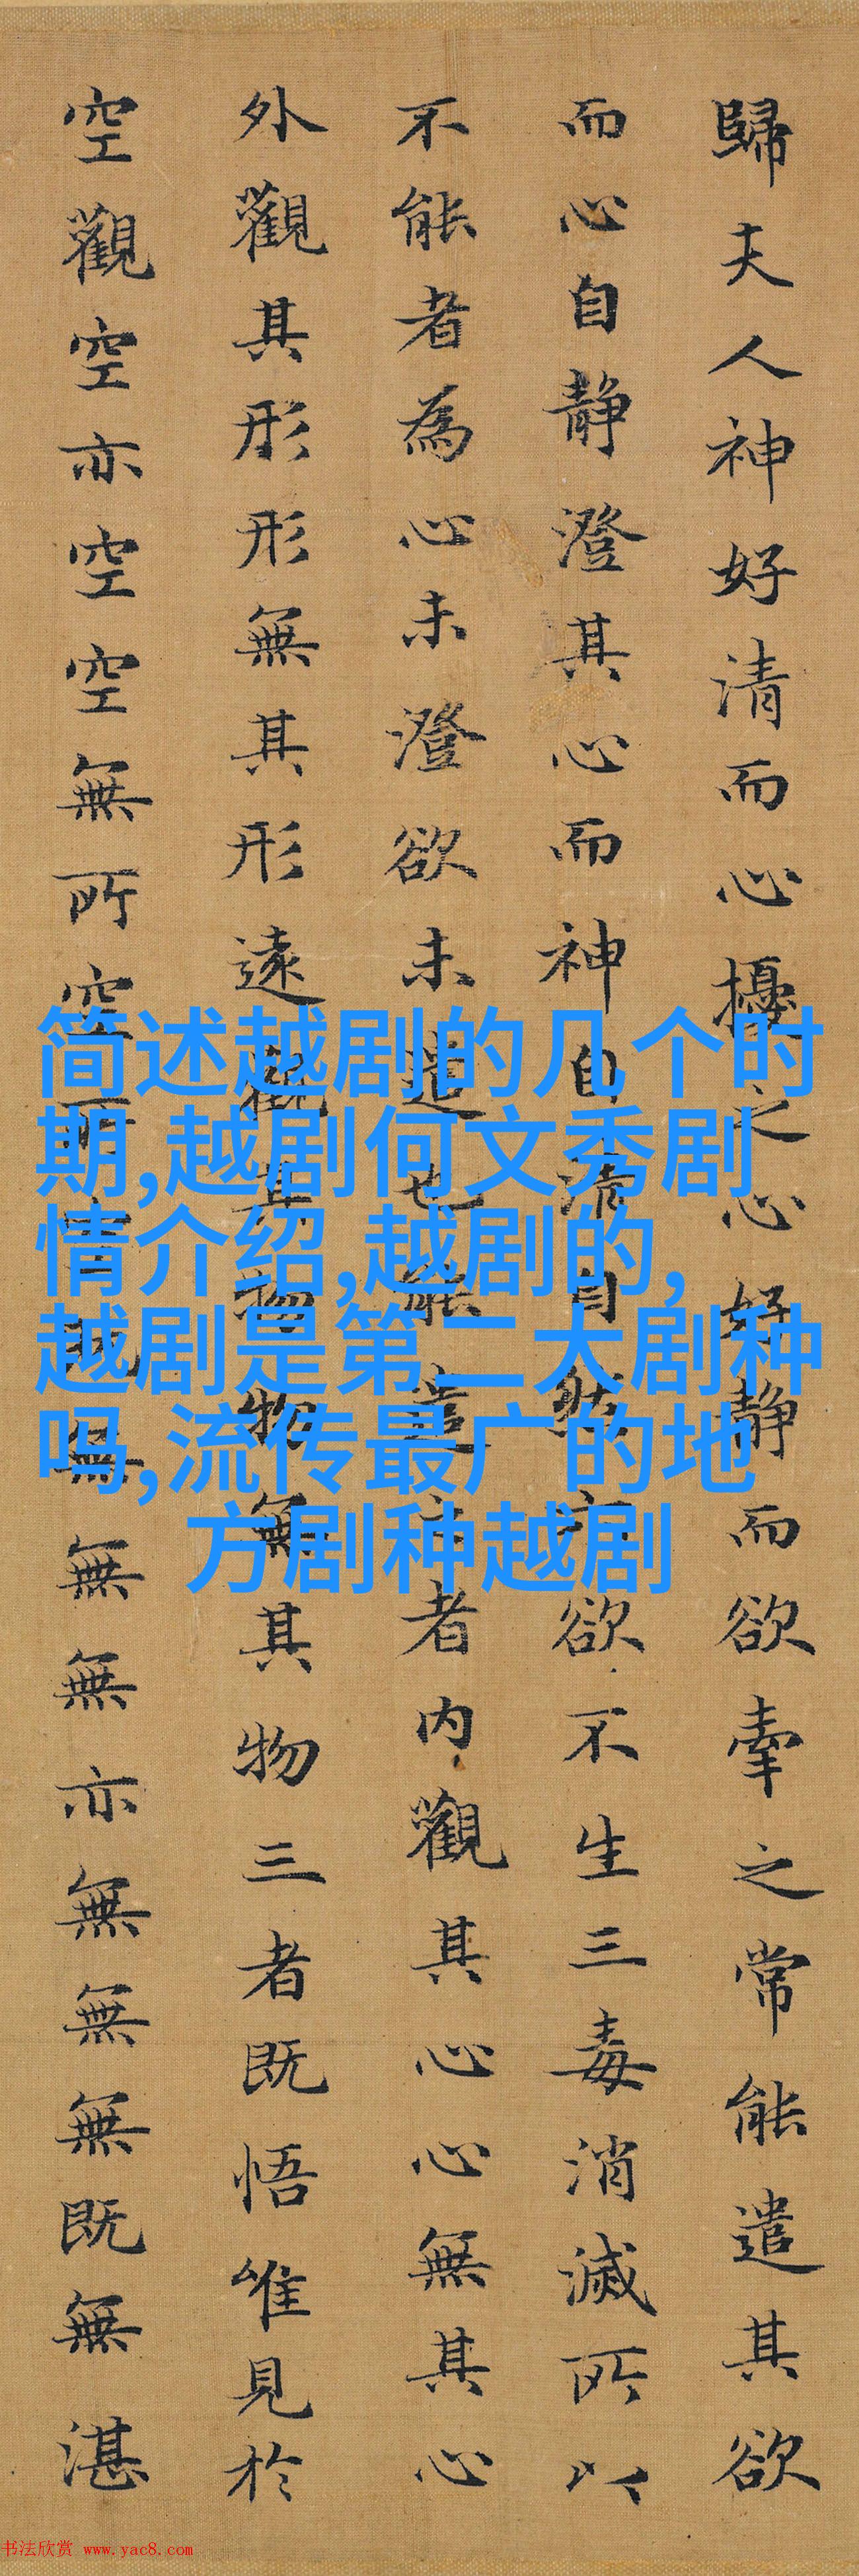 歸夫人神好清而心擾之心好静而欲牽之常能遣其欲
而心自静澄其心而神自清自然六欲不生三毒消滅所以
不能者為心未澄欲未遣也能遣之者内觀其心心無其心
外觀其形形無其形遠觀其物物無其物三者既悟唯見於
空觀空亦空空無所空所空既無無無亦無無無既無湛
简述越剧的几个时
期,越剧何文秀剧
情介绍,越剧的,
越剧是第二大剧种
吗,流传最广的地
方剧种越剧
书法欣赏 www.yac8.com